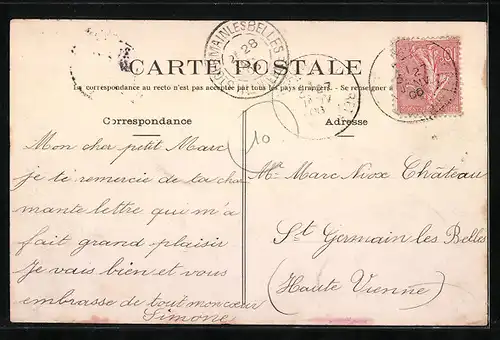 CARTE POSTALE
La correspondance au recto n'est pas acceptée par tous les pays étrangers. - Se renseigner à
Correspondance
Adresse
10
Mon cher petit Marc
je te remercie de ta char
mante lettre qui m'a
fait grand plaisir
Je vais bien et vous
embrasse de tout mon cœur
Simone
Mr Marc Niox Château
St Germain les Belles
(Haute Vienne)